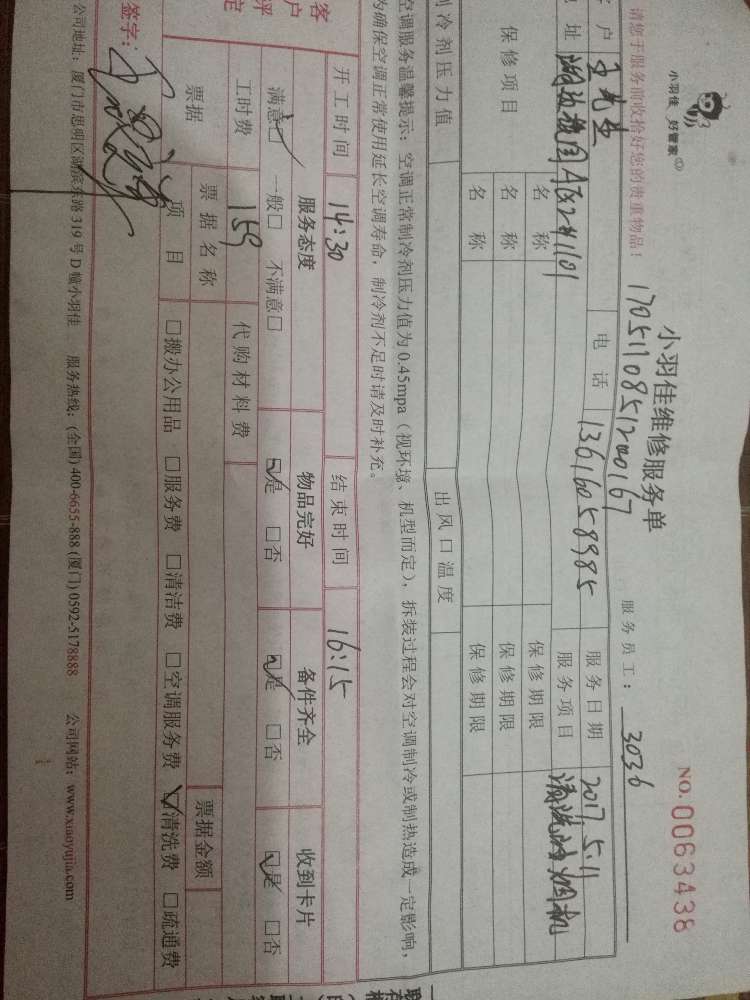 小羽佳 好管家
小羽佳维修服务单
NO.0063438
17051108512000167
请您于服务前收拾好您的贵重物品！
服务员工：3036
客户 王先生 电话 13616058985 服务日期 2017.5.11
地址 A区2#1101 服务项目 清洗油烟机
保修项目 名称 保修期限
名称 保修期限
名称 保修期限
制冷剂压力值 出风口温度
空调服务温馨提示：空调正常制冷剂压力值为0.45mpa（视环境、机型而定），拆装过程会对空调制冷或制热造成一定影响，
为确保空调正常使用延长空调寿命，制冷剂不足时请及时补充。
开工时间 14:30 结束时间 16:15
客户评定 服务态度 物品完好 备件齐全 收到卡片
满意☑ 一般□ 不满意□ ☑是 □否 ☑是 □否 ☑是 □否
工时费 159 代购材料费
票据 票据名称 票据金额
项目 □搬办公用品 □服务费 □清洁费 □空调服务费 ☑清洗费 □疏通费
签字：
公司地址：厦门市思明区湖滨东路319号D幢小羽佳 服务热线：(全国)400-6655-888 (厦门)0592-5178888 公司网站：www.xiaoyujia.com